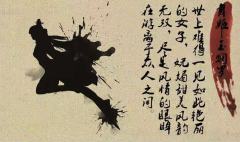 世上难得一见如此艳丽
的女子，妩媚甜美风韵
无双，尽是风情的眼眸
在游离于众人之间